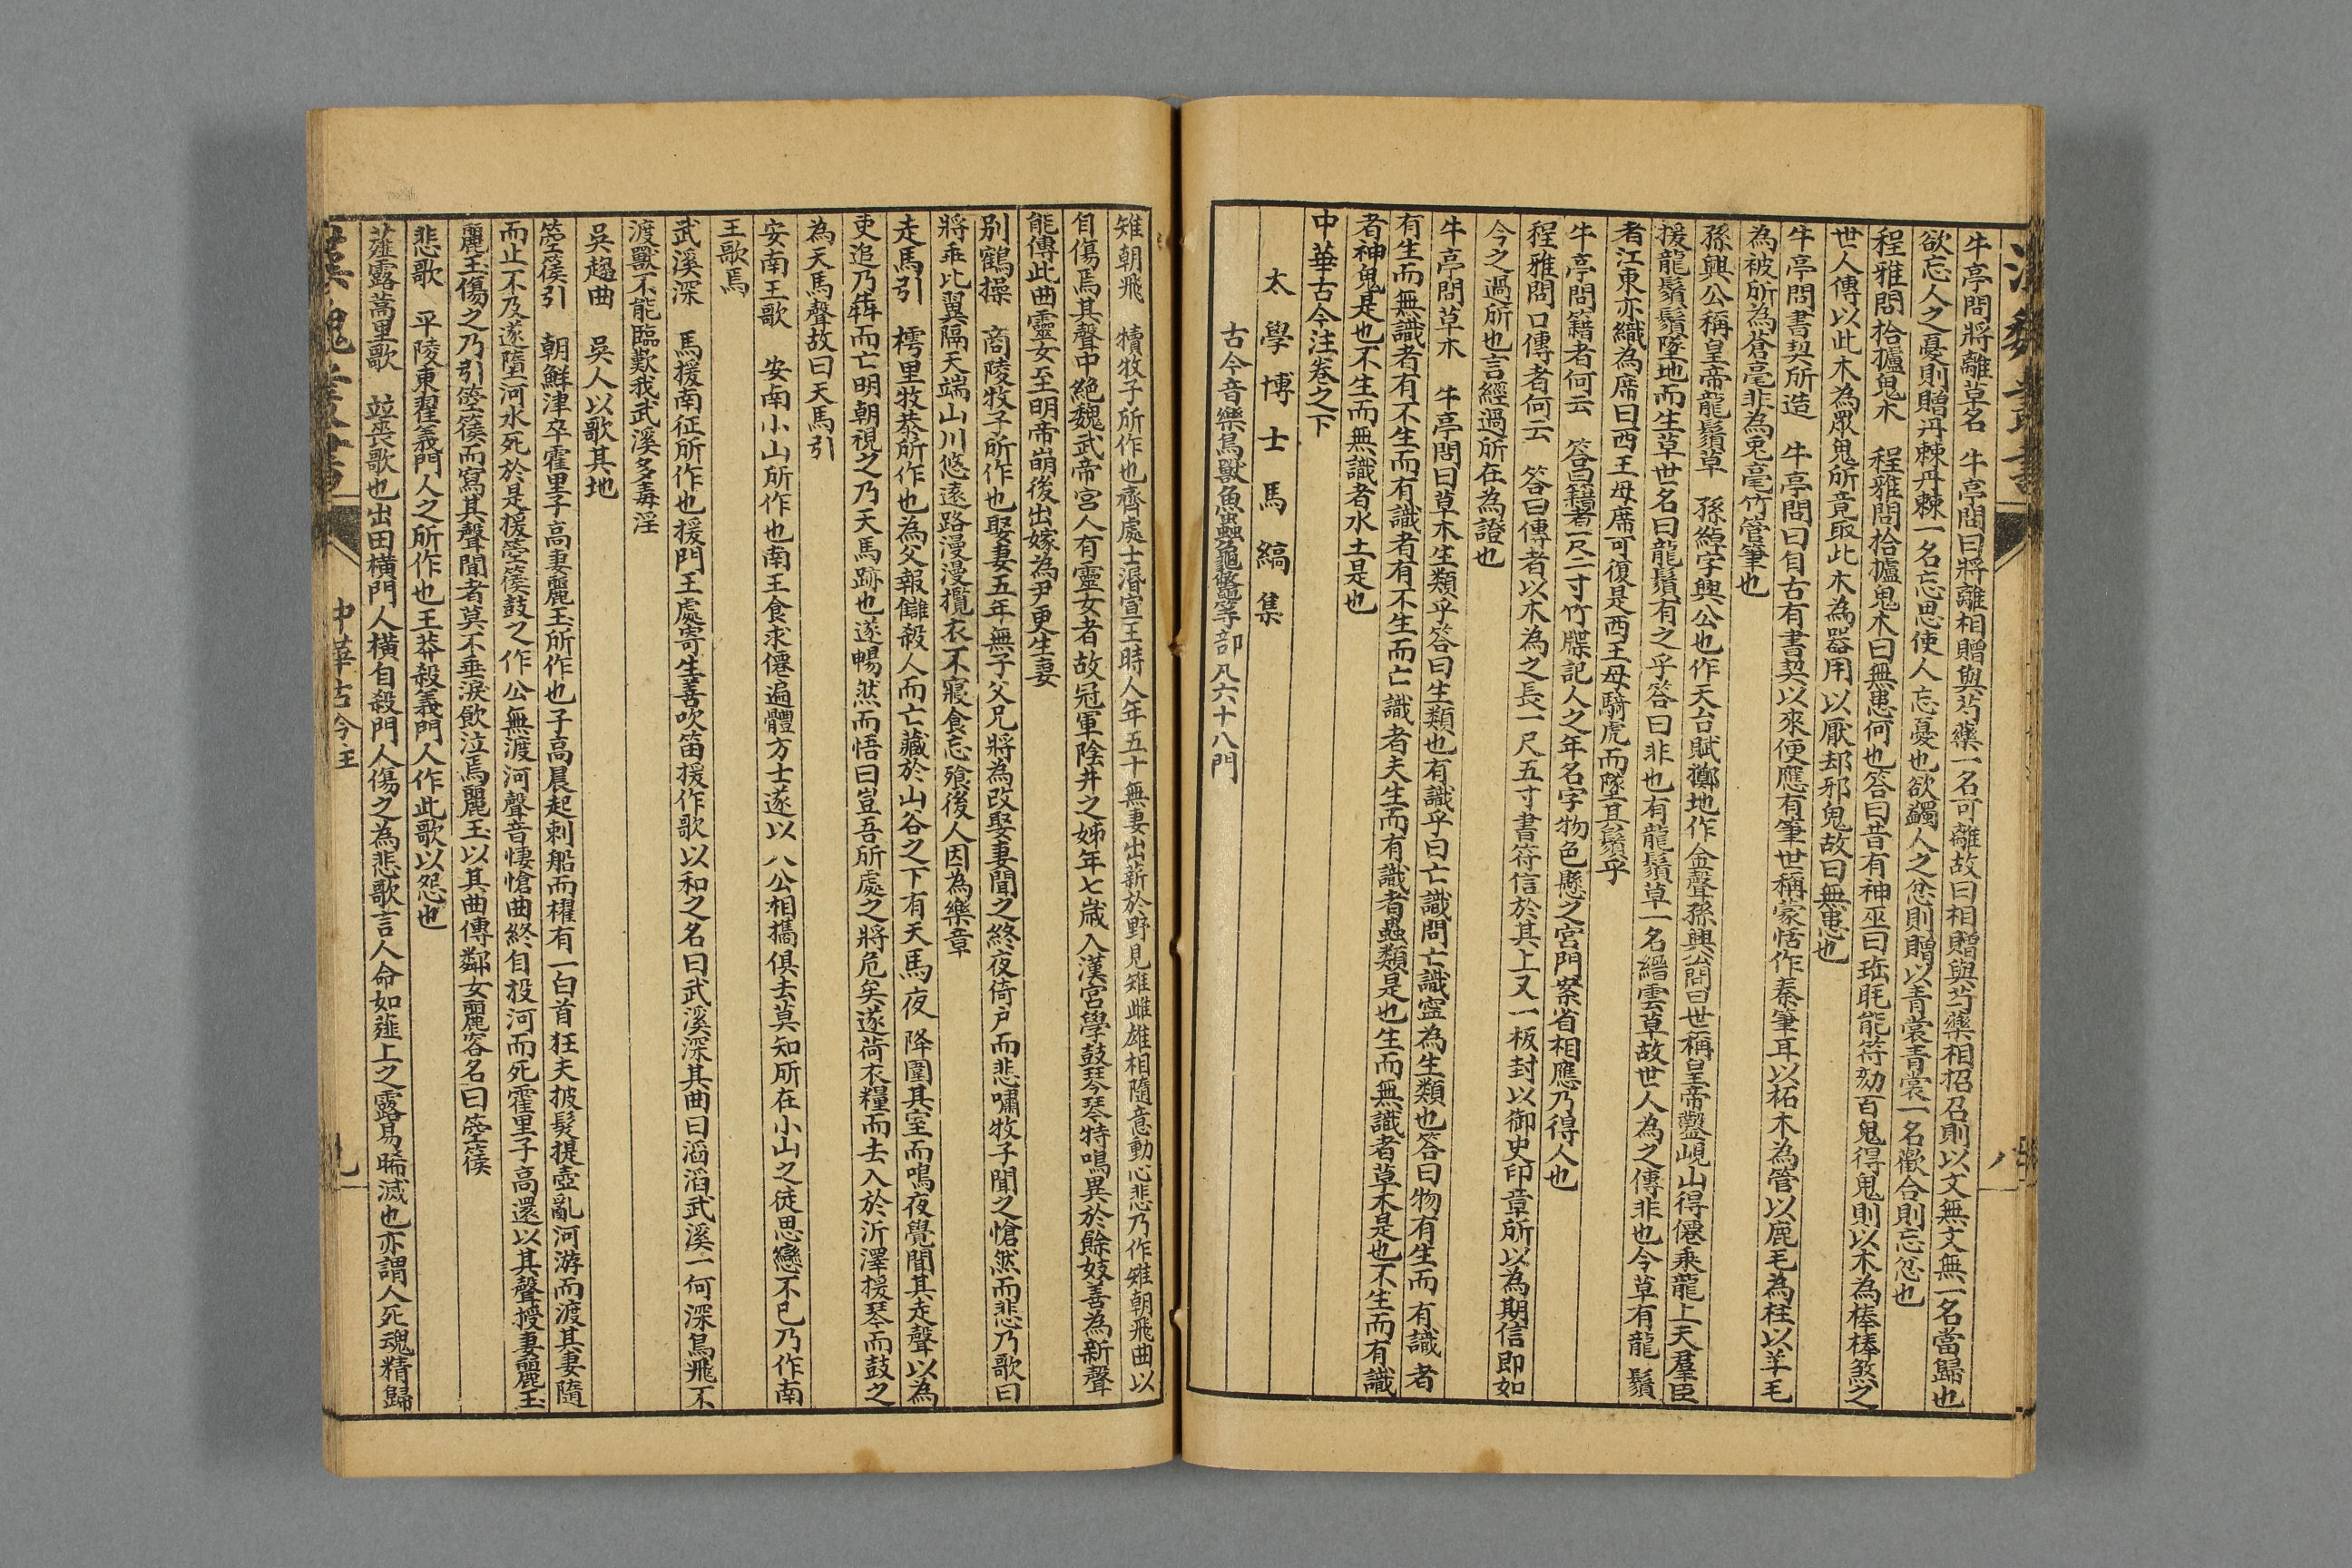 牛亭問將離草名　牛亭問曰將離相贈與芍藥一名可離故曰相贈與芍藥相招召則以文無文無一名當歸也
欲忘人之憂則贈丹棘丹棘一名忘思使人忘憂也欲蠲人之忿則贈以青裳青裳一名歡合則忘忿也
程雅問拾攎鬼木　程雅問拾攎鬼木曰無患何也答曰昔有神巫曰珤眊能符劾百鬼得鬼則以木為棒棒煞之
世人傳以此木為眾鬼所竟取此木為器用以厭却邪鬼故曰無患也
牛亭問書契所造　牛亭問曰自古有書契以來便應有筆世稱蒙恬作秦筆耳以柘木為管以鹿毛為柱以羊毛
為被所為蒼毫非為兎毫竹管筆也
孫興公稱皇帝龍鬚草　孫綽字興公也作天台賦擲地作金聲孫興公問曰世稱皇帝鑿峴山得僊乘龍上天羣臣
援龍鬚鬚墜地而生草世名曰龍鬚有之乎答曰非也有龍鬚草一名縉雲草故世人為之傳非也今草有龍鬚
者江東亦織為席曰西王母席可復是西王母騎虎而墜其鬚乎
牛亭問籍者何云　答曰籍者一尺二寸竹牒記人之年名字物色懸之宮門案省相應乃得人也
程雅問口傳者何云　答曰傳者以木為之長一尺五寸書符信於其上又一板封以御史印章所以為期信即如
今之過所也言經過所在為證也
牛亭問草木　牛亭問曰草木生類乎答曰生類也有識乎曰亡識問亡識寍為生類也答曰物有生而有識者
有生而無識者有不生而有識者有不生而亡識者夫生而有識者蟲類是也生而無識者草木是也不生而有識
者神鬼是也不生而無識者水土是也
中華古今注卷之下
太學博士馬縞集
古今音樂鳥獸魚蟲龜鼈等部凡六十八門
雉朝飛　犢牧子所作也齊處士湣宣王時人年五十無妻出薪於野見雉雌雄相隨意動心悲乃作雉朝飛曲以
自傷焉其聲中絶魏武帝宮人有靈女者故冠軍陰井之姊年七歲入漢宮學鼓琴琴特鳴異於餘妓善為新聲
能傳此曲靈女至明帝崩後出嫁為尹更生妻
别鶴操　商陵牧子所作也娶妻五年無子父兄將為改娶妻聞之終夜倚戸而悲嘯牧子聞之愴然而悲乃歌曰
將乖比翼隔天端山川悠遠路漫漫攬衣不寢食忘飱後人因為樂章
走馬引　樗里牧恭所作也為父報讎殺人而亡藏於山谷之下有天馬夜降圍其室而鳴夜覺聞其走聲以為
吏追乃犇而亡明朝視之乃天馬跡也遂暢然而悟曰豈吾所處之將危矣遂荷衣糧而去入於沂澤援琴而鼓之
為天馬聲故曰天馬引
安南王歌　安南小山所作也南王食求僊遍體方士遂以八公相擕俱去莫知所在小山之徒思戀不已乃作南
王歌焉
武溪深　馬援南征所作也援門王處寄生善吹笛援作歌以和之名曰武溪深其曲曰滔滔武溪一何深鳥飛不
渡獸不能臨歎我武溪多毒淫
吳趨曲　吳人以歌其地
箜篌引　朝鮮津卒霍里子高妻麗玉所作也子高晨起刺船而櫂有一白首狂夫披髮提壺亂河游而渡其妻隨
而止不及遂墮河水死於是援箜篌鼓之作公無渡河聲音悽愴曲終自投河而死霍里子高還以其聲授妻麗玉
麗玉傷之乃引箜篌而寫其聲聞者莫不垂淚飲泣焉麗玉以其曲傳鄰女麗容名曰箜篌
悲歌　平陵東翟義門人之所作也王莽殺義門人作此歌以怨也
薤露蒿里歌　竝喪歌也出田橫門人橫自殺門人傷之為悲歌言人命如薤上之露易晞滅也亦謂人死魂精歸
漢魏叢書　中華古今注　九